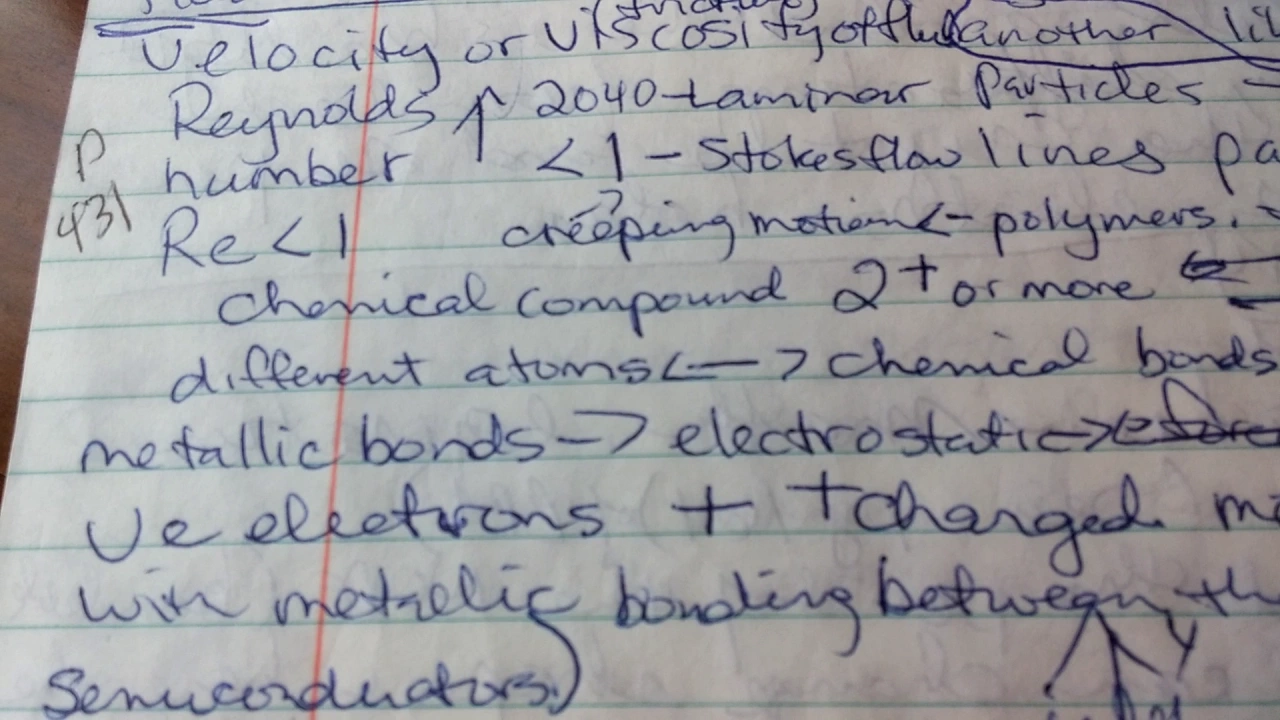 velocity or viscosity of flu another
Reynolds ↑ 2040-Laminar Particles -
P number < 1 - Stokesflow lines pa
431 Re < 1 creeping motion <- polymers.
chemical compound 2+ or more ←
different atoms <--> chemical bonds
metallic bonds -> electrostatic ->
Ve electrons + +charged
with metallic bonding between th
Semiconductors.)